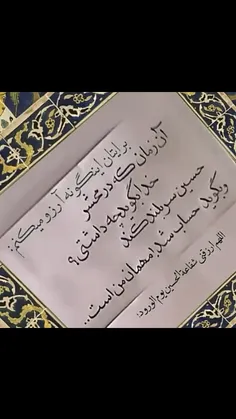 برایتان اینگونه آرزو میکنم
آن زمان که در محشر
خدا بگوید چه داشتی؟
حسین سر بلند کند
و بگوید حساب شد! مهمان من است..
اللهم ارزقنی شفاعة الحسین یوم الورود